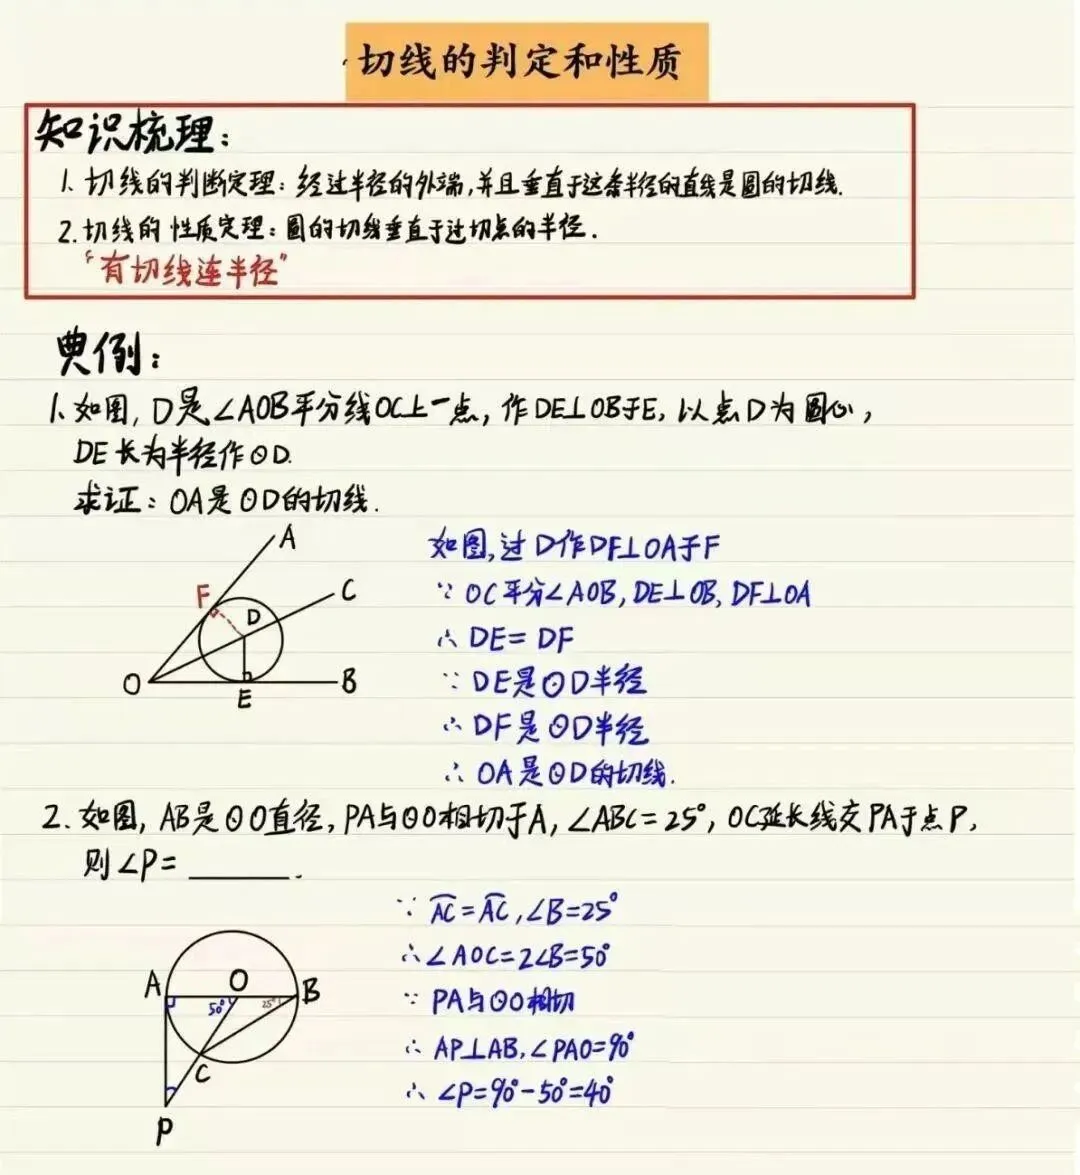 切线的判定和性质
知识梳理：
1. 切线的判断定理：经过半径的外端，并且垂直于这条半径的直线是圆的切线.
2. 切线的性质定理：圆的切线垂直于过切点的半径.
“有切线连半径”
典例：
1. 如图，D是∠AOB平分线OC上一点，作DE⊥OB于E，以点D为圆心，
DE长为半径作⊙D.
求证：OA是⊙D的切线.
A
F
C
D
O
E
B
如图，过D作DF⊥OA于F
∵ OC平分∠AOB，DE⊥OB，DF⊥OA
∴ DE=DF
∵ DE是⊙D半径
∴ DF是⊙D半径
∴ OA是⊙D的切线.
2. 如图，AB是⊙O直径，PA与⊙O相切于A，∠ABC=25°，OC延长线交PA于点P，
则∠P=______.
A
O
B
50°
25°
C
P
∵ AC=AC，∠B=25°
∴ ∠AOC=2∠B=50°
∵ PA与⊙O相切
∴ AP⊥AB，∠PAO=90°
∴ ∠P=90°-50°=40°